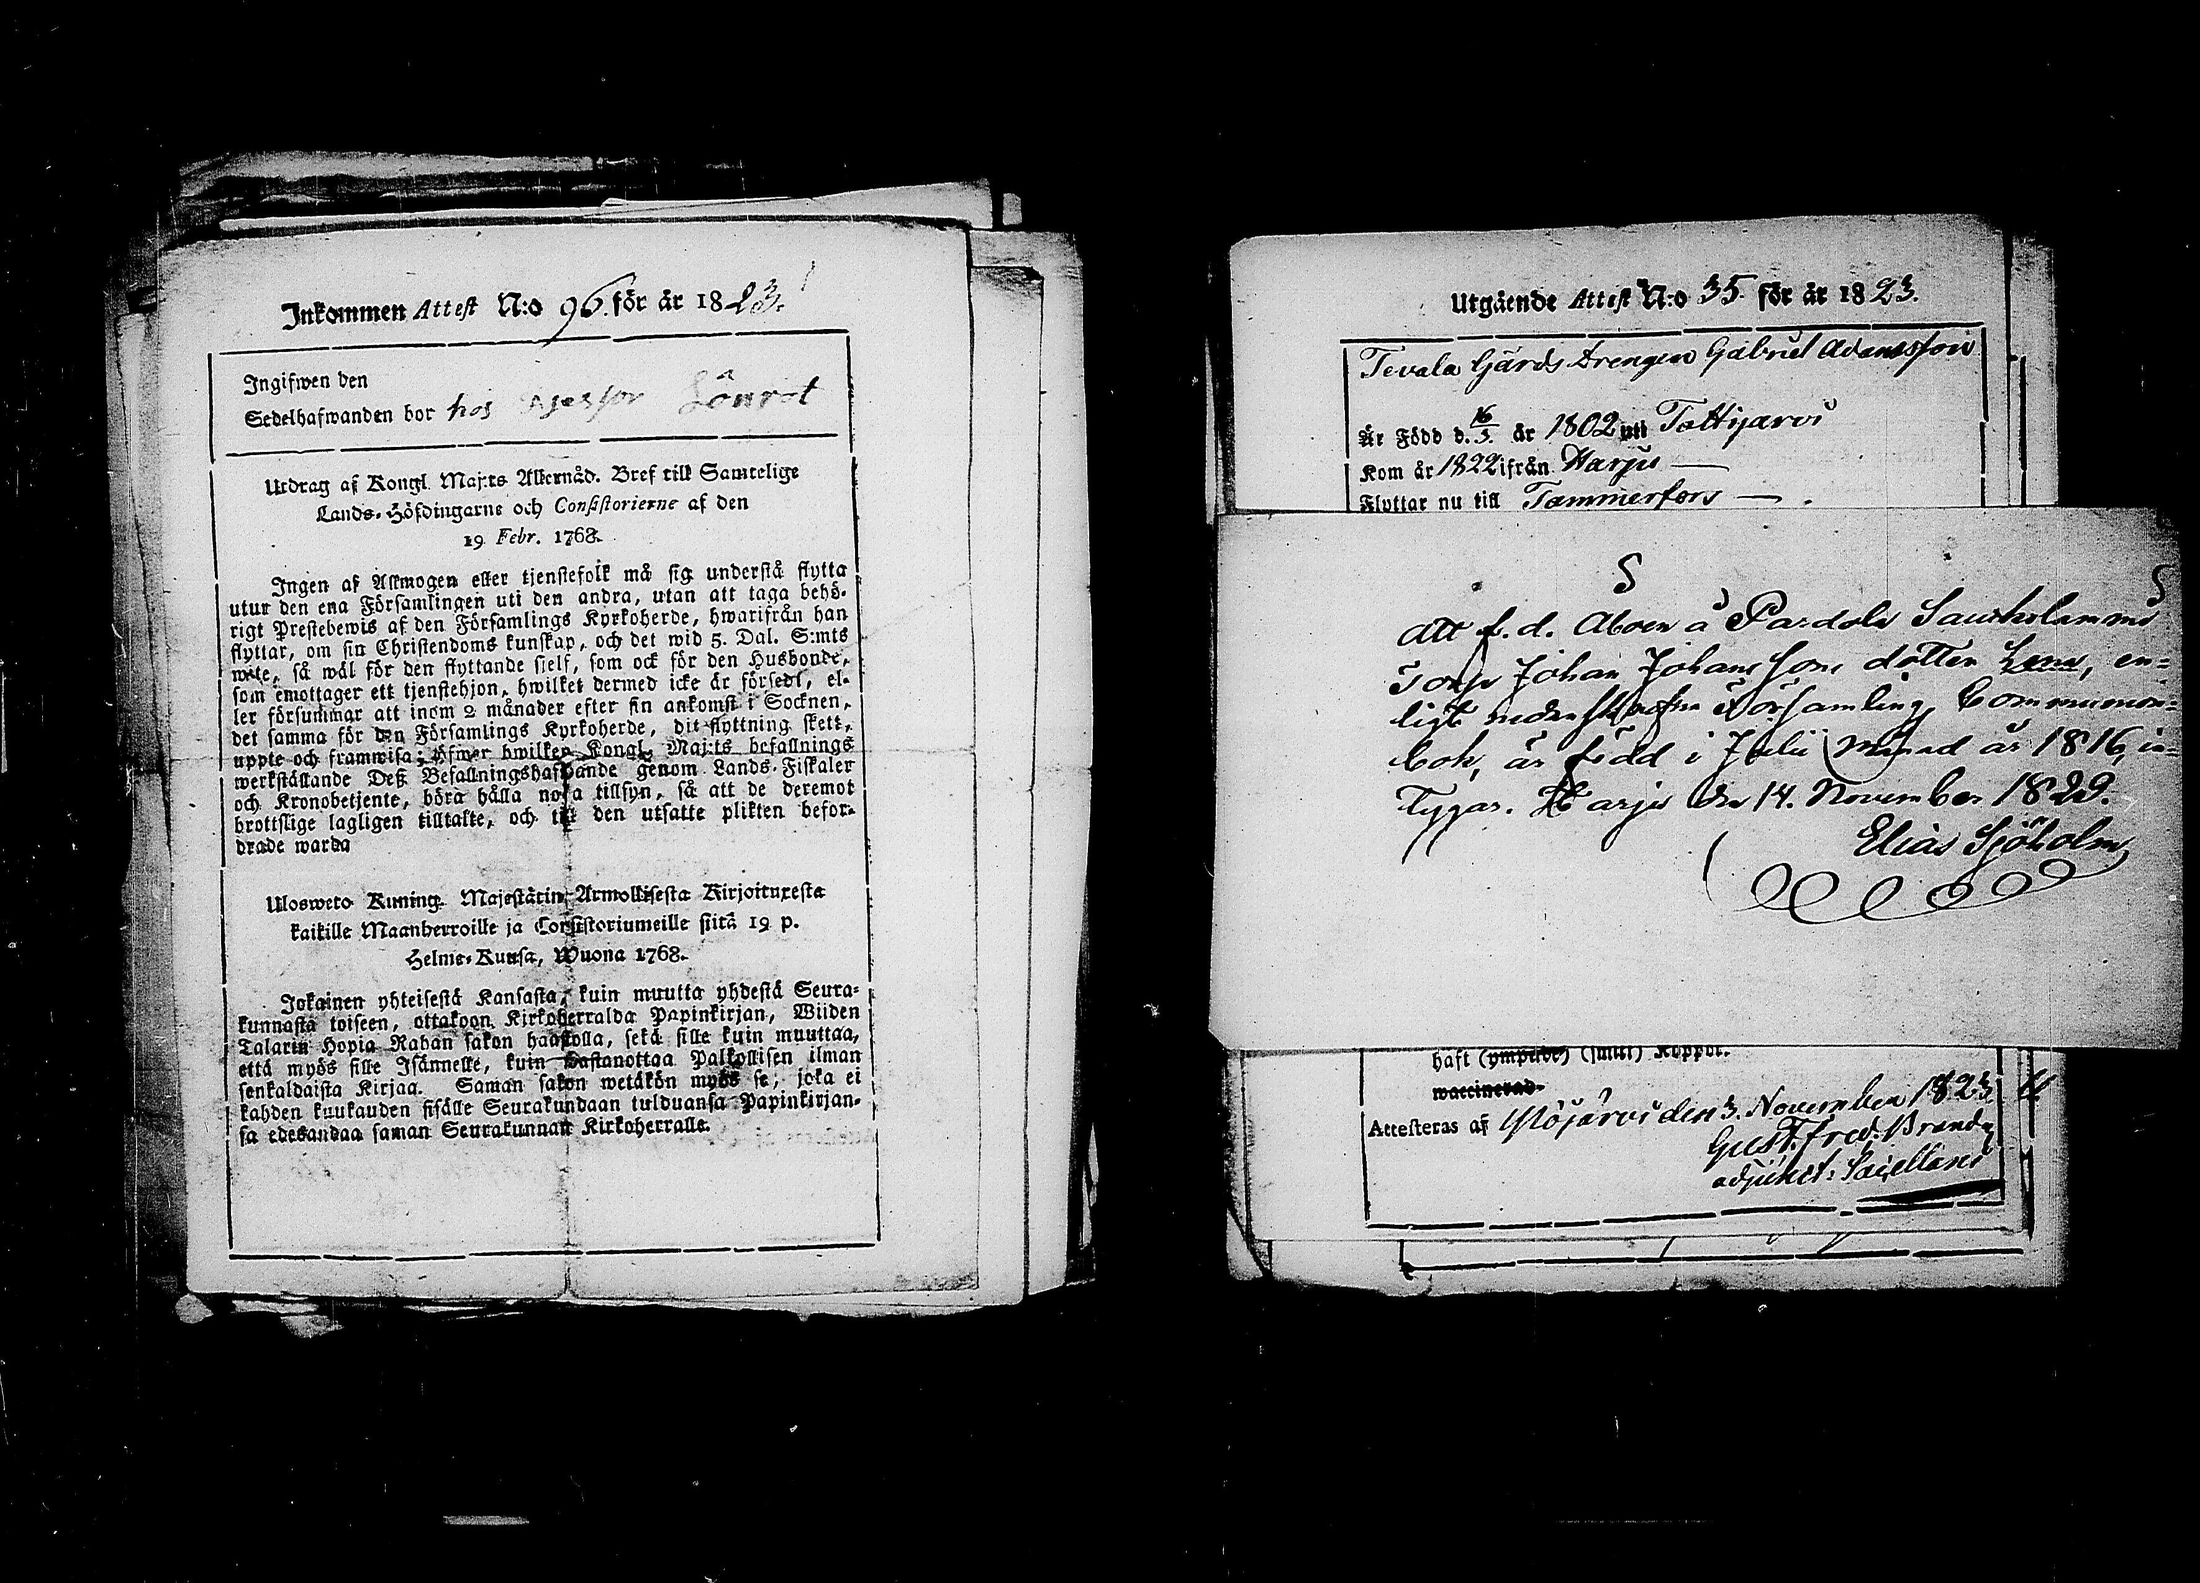 Inkommen Attest N:o 96. för år 1823.
Ingifwen den
Sedelhafwanden bor hos Lönrot
Utdrag af Kongl. Maj:ts Allernåd. Bref till Samtelige
Lands-Höfdingarne och Consistorierne af den
19 Febr. 1768.
Ingen af Allmogen eller tjenstefolk må sig understå flytta
utur den ena Församlingen uti den andra, utan att taga behö-
rigt Prestebewis af den Församlings Kyrkoherde, hwarifrån han
flyttar, om sin Christendoms kunskap, och det wid 5. Dal. S:mts
wite, så wäl för den flyttande sjelf, som ock för den Husbonde,
som emottager ett tjenstehjon, hwilket dermed icke är försedt, el-
ler försummar att inom 2 månader efter sin ankomst i Socknen,
det samma för den Församlings Kyrkoherde, dit flyttning skett,
uppte och framwisa; öfwer hwilken Kongl. Maj:ts befallnings
werkställande Deß Befallningshafwande genom Lands-Fiskaler
och Kronobetjente, böra hålla noga tillsyn, så att de deremot
brottslige lagligen tilltalte, och till den utsatte plikten befor-
drade warda
Ulosweto Kuning. Majestätin Armollisesta Kirjoituxesta
kaikille Maanherroille ja Consistoriumeille siitä 19 p.
Helme-Kuusa, Wuona 1768.
Jokainen yhteisestä Kansasta, kuin muutta yhdestä Seura-
kunnasta toiseen, ottakoon Kirkoherralda Papinkirjan, Wiiden
Talarin Hopia Rahan sakon haastolla, sekä sille kuin muuttaa,
että myös sille Isännelle, kuin wastanottaa Palkollisen ilman
senkaldaista Kirjaa. Saman sakon wetäkön myös se, joka ei
kahden kuukauden sisälle Seurakundaan tulduansa Papinkirjan-
sa edesandaa saman Seurakunnan Kirkoherralle.
Utgående Attest N:o 35. för år 1823.
Tevala Gårds Drengen Gabriel Adamsson
Är Född d. 16/3. år 1802 uti Tottijärvi
Kom år 1822 ifrån Harju
Flyttar nu till Tammerfors
Att f. d. Åboen å Pardola Saunholamma
Torp Johan Johanssons dotter Lena, en-
ligt nedanskrefne Församlings Communion-
bok, är född i Julii månad år 1816, in-
tygar. Harju den 14. November 1829.
Elias Sjöholm
haft (ympade) (sjelf) Koppor.
waccinerad.
Attesteras af Ylöjärvi den 3. November 1823.
Gust. Fred. Brand
adjunct: Sacellani